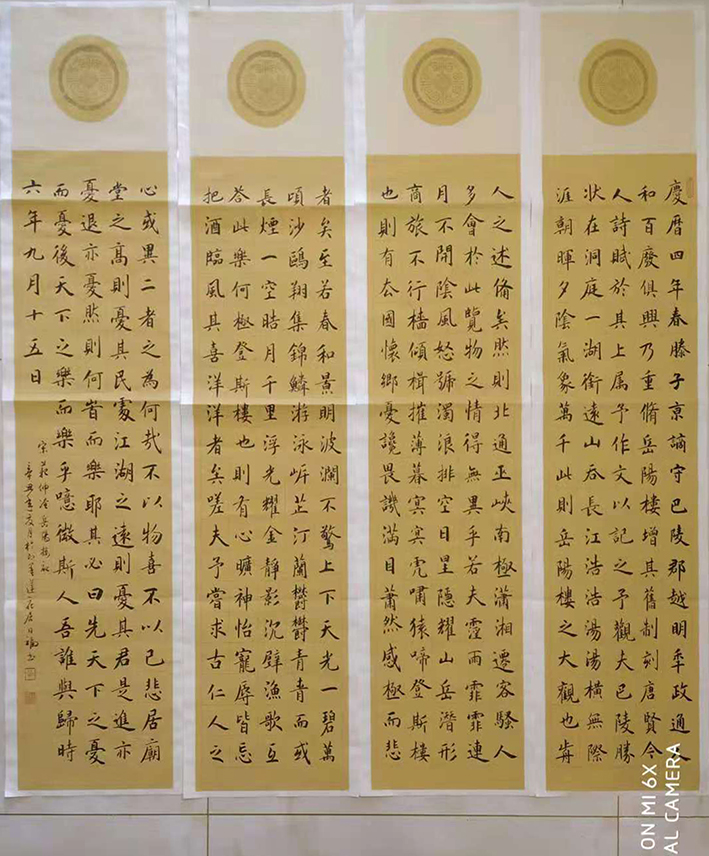 慶曆四年春滕子京謫守巴陵郡越明秊政通人
和百廢俱興乃重脩岳陽樓增其舊制刻唐賢今
人詩賦於其上属予作文以記之予觀夫巴陵勝
狀在洞庭一湖銜遠山吞長江浩浩湯湯橫無際
涯朝暉夕陰氣象萬千此則岳陽樓之大觀也歬
人之述備矣然則北通巫峽南極瀟湘遷客騷人
多會於此覽物之情得無異乎若夫霪雨霏霏連
月不開陰風怒號濁浪排空日星隱耀山岳潛形
商旅不行檣傾楫摧薄暮冥冥虎嘯猿啼登斯樓
也則有去國懷鄉憂讒畏譏滿目蕭然感極而悲
者矣至若春和景明波瀾不驚上下天光一碧萬
頃沙鷗翔集錦鱗游泳岸芷汀蘭鬱鬱青青而或
長煙一空皓月千里浮光耀金靜影沈璧漁歌互
答此樂何極登斯樓也則有心曠神怡寵辱皆忘
把酒臨風其喜洋洋者矣嗟夫予嘗求古仁人之
心或異二者之為何哉不以物喜不以己悲居廟
堂之高則憂其民處江湖之遠則憂其君是進亦
憂退亦憂然則何旹而樂耶其必曰先天下之憂
而憂後天下之樂而樂乎噫微斯人吾誰與歸時
六年九月十五日
宋范仲淹岳陽樓記
ON MI 6X
AL CAMERA